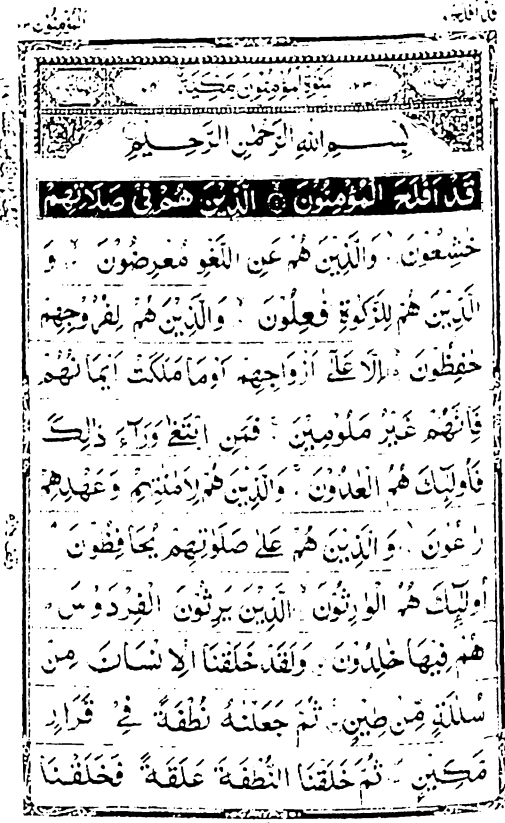 قد افلح
المؤمنون
سورة المؤمنون مكية
بِسْمِ اللهِ الرَّحْمٰنِ الرَّحِيْمِ
قَدْ اَفْلَحَ الْمُؤْمِنُوْنَ الَّذِيْنَ هُمْ فِيْ صَلَاتِهِمْ
خٰشِعُوْنَ وَالَّذِيْنَ هُمْ عَنِ اللَّغْوِ مُعْرِضُوْنَ وَ
الَّذِيْنَ هُمْ لِلزَّكٰوةِ فٰعِلُوْنَ وَالَّذِيْنَ هُمْ لِفُرُوْجِهِمْ
حٰفِظُوْنَ اِلَّا عَلٰٓى اَزْوَاجِهِمْ اَوْمَا مَلَكَتْ اَيْمَانُهُمْ
فَاِنَّهُمْ غَيْرُ مَلُوْمِيْنَ فَمَنِ ابْتَغٰى وَرَآءَ ذٰلِكَ
فَاُولٰٓئِكَ هُمُ الْعٰدُوْنَ وَالَّذِيْنَ هُمْ لِاَمٰنٰتِهِمْ وَعَهْدِهِمْ
رَاعُوْنَ وَالَّذِيْنَ هُمْ عَلٰى صَلَوٰتِهِمْ يُحَافِظُوْنَ
اُولٰٓئِكَ هُمُ الْوٰرِثُوْنَ الَّذِيْنَ يَرِثُوْنَ الْفِرْدَوْسَ
هُمْ فِيْهَا خٰلِدُوْنَ وَلَقَدْ خَلَقْنَا الْاِنْسَانَ مِنْ
سُلٰلَةٍ مِّنْ طِيْنٍ ثُمَّ جَعَلْنٰهُ نُطْفَةً فِيْ قَرَارٍ
مَّكِيْنٍ ثُمَّ خَلَقْنَا النُّطْفَةَ عَلَقَةً فَخَلَقْنَا